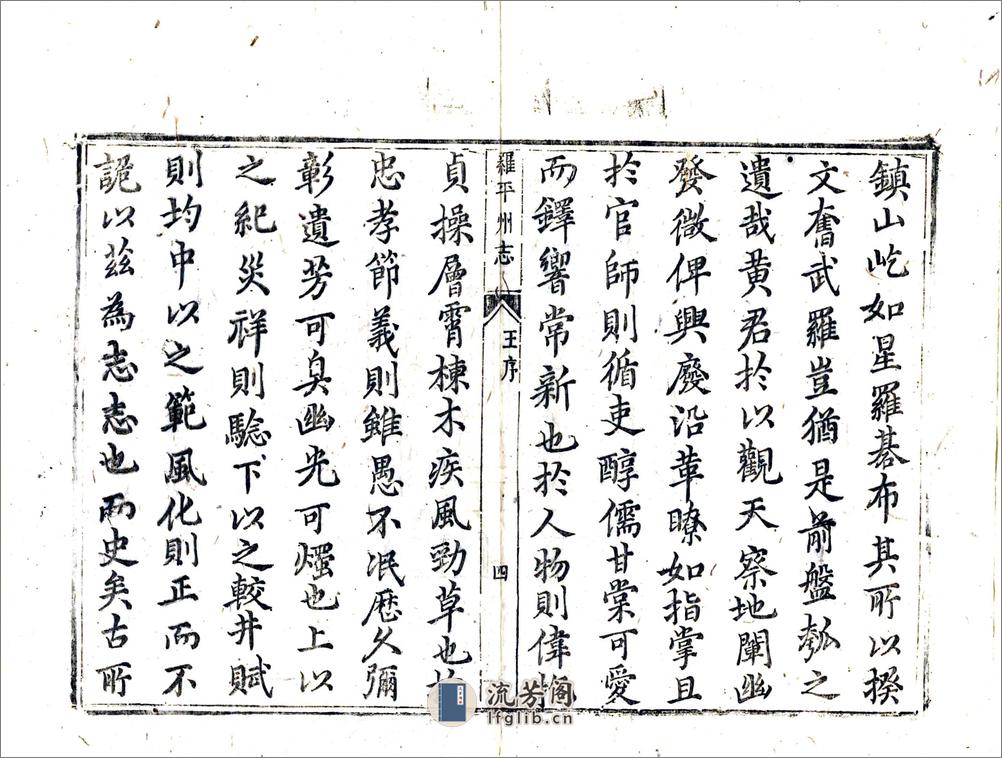 鎮山屹如星羅碁布其所以揆
文奮武羅豈猶是前盤瓠之
遺哉黄君於以觀天察地闡幽
發微俾興廢沿革瞭如指掌且
於官師則循吏醇儒甘棠可愛
而鐸響常新也於人物則偉
羅平州志
王序
四
貞操層霄棟木疾風勁草也
忠孝節義則雖愚不泯歷久彌
彰遺芳可臭幽光可燭也上以
之紀災祥則驗下以之較井賦
則均中以之範風化則正而不
詭以茲為志志也而史矣古所
流芳阁
lfglib.cn